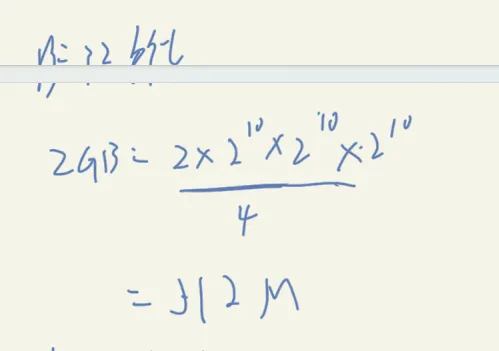 n = 32 bit
2GB = 2 × 2^10 × 2^10 × 2^10
4
= 512 M